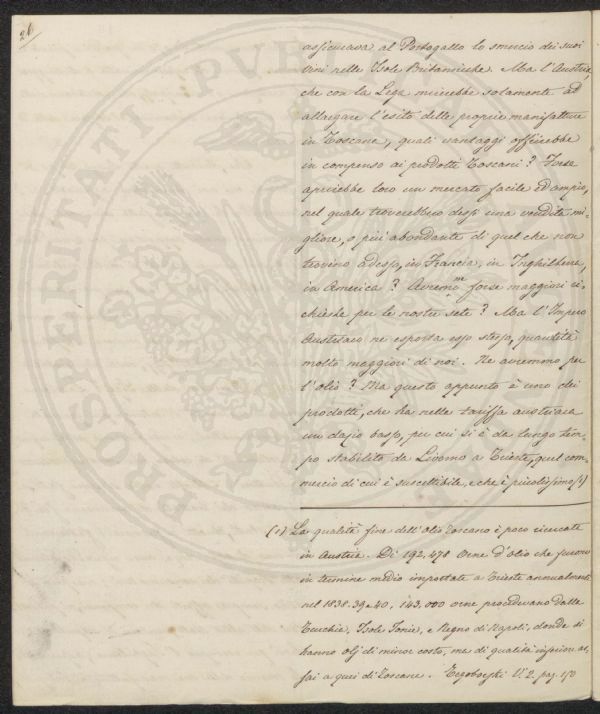 26
assicurava al Portogallo lo smercio dei suoi
vini nelle Isole Britanniche. Ma l'Austria,
che con la Lega mirerebbe solamente ad
allargare l'esito delle proprie manifatture
in Toscana, quali vantaggi offrirebbe
in compenso ai prodotti Toscani? Forse
aprirebbe loro un mercato facile ed ampio,
nel quale troverebbero essi una vendita mi-
gliore, o più abbondante di quel che non
trovino adesso, in Francia, in Inghilterra,
in America? Avremmo forse maggiori ri-
chieste per le nostre sete? Ma l'Impero
Austriaco ne esporta esso stesso, quantità
molto maggiori di noi. Ne avremmo per
l'olio? Ma questo appunto è uno dei
prodotti, che ha nella tariffa austriaca
un dazio basso, per cui si è da lungo tem-
po stabilito da Livorno a Trieste, quel com-
mercio di cui è suscettibile, e che è piccolissimo (1)
(1) La qualità fine dell'Olio Toscano è poco ricercata
in Austria. Di 192,478 Orne d'olio che furono
in termine medio importate a Trieste annualmente
nel 1838. 39 e 40, 143,000 orne procedevano dalle
Turchia, Isole Ionie, e Regno di Napoli, donde si
hanno olj di minor costo, ma di qualità inferiore as-
sai a quei di Toscana. Tegoborski V. 2. pag. 170
PROSPERITATI PVBLICAE